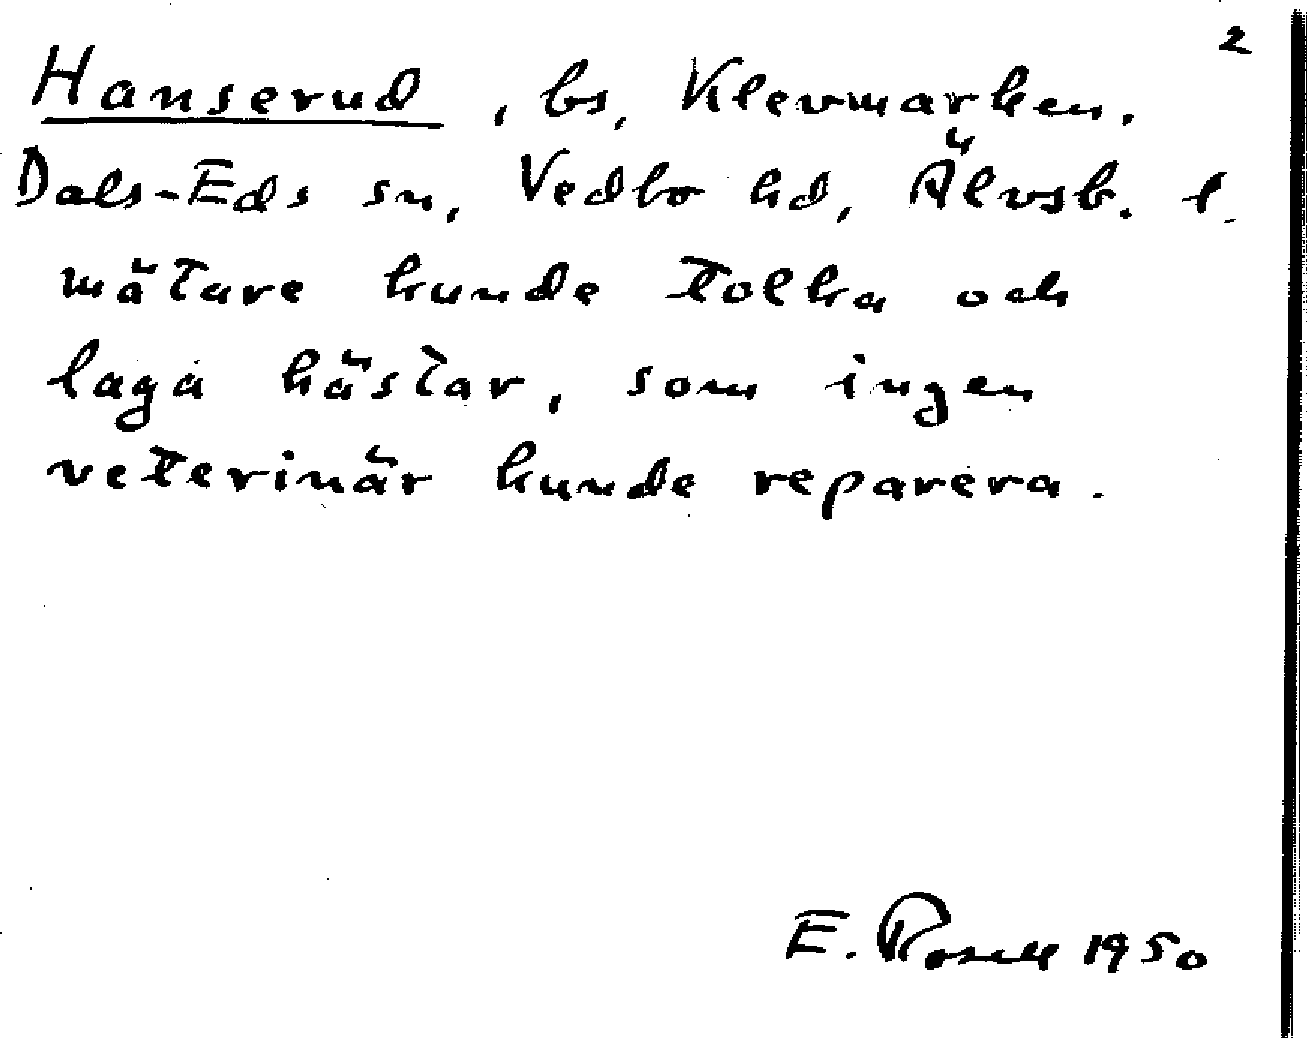 2
Hanserud, bs, Klevmarken.
Dals-Eds sn, Vedbo hd, Älvsb. l.
mätare kunde tolka och
laga hästar, som ingen
veterinär kunde reparera.
E. Rosell 1950